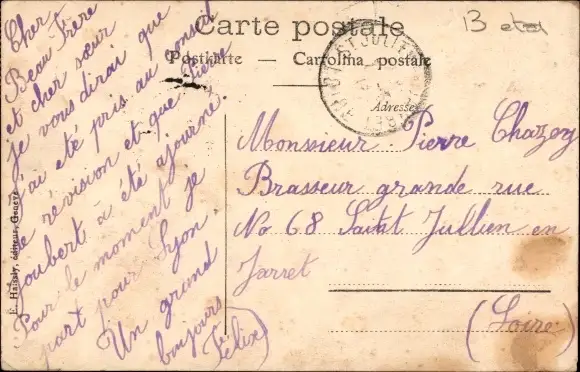 Carte postale
Postkarte — Cartolina postale
Adresse
13
ST JULIEN
Cher
Beau Frère
et cher sœur
je vous dirai que
j'ai eté pris au conseil
de révision et que Pierre
Joubert à été ajourné.
Pour le moment je
part pour Lyon
Un grand
bonjours
Félix
Monsieur Pierre Chazey
Brasseur grande rue
No 68 Saint Jullien en
Jarret
(Loire)
E. Haissly, éditeur, Genève